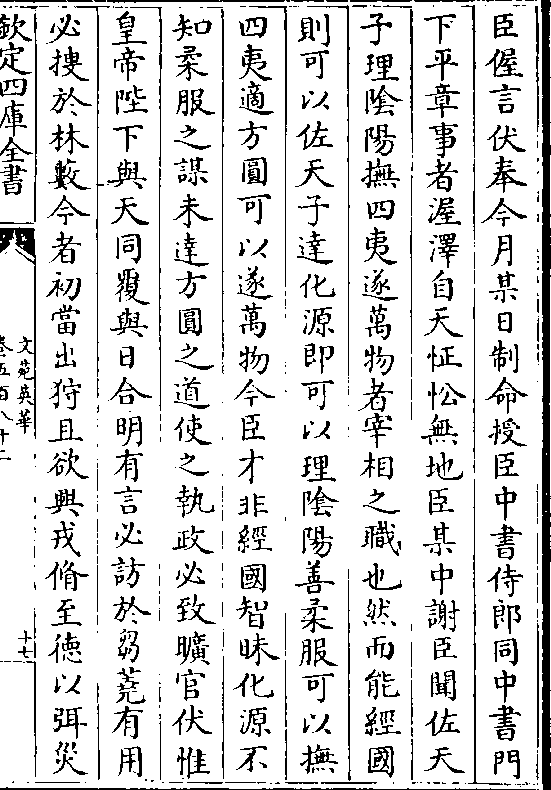 臣偓言伏奉今月某日制命授臣中書侍郎同中書門
下平章事者渥澤自天怔忪無地臣某中謝臣聞佐天
子理隂陽撫四夷遂萬物者宰相之職也然而能經國
則可以佐天子達化源即可以理隂陽善柔服可以撫
四夷適方圓可以遂萬物今臣才非經國智昧化源不
知柔服之謀未達方圓之道使之執政必致曠官伏惟
皇帝陛下與天同覆與日合明有言必訪於芻蕘有用
必捜於林藪今者初當出狩且欲興戎脩至德以弭災
欽定四庫全書
文苑英華
卷五百八十二
十七